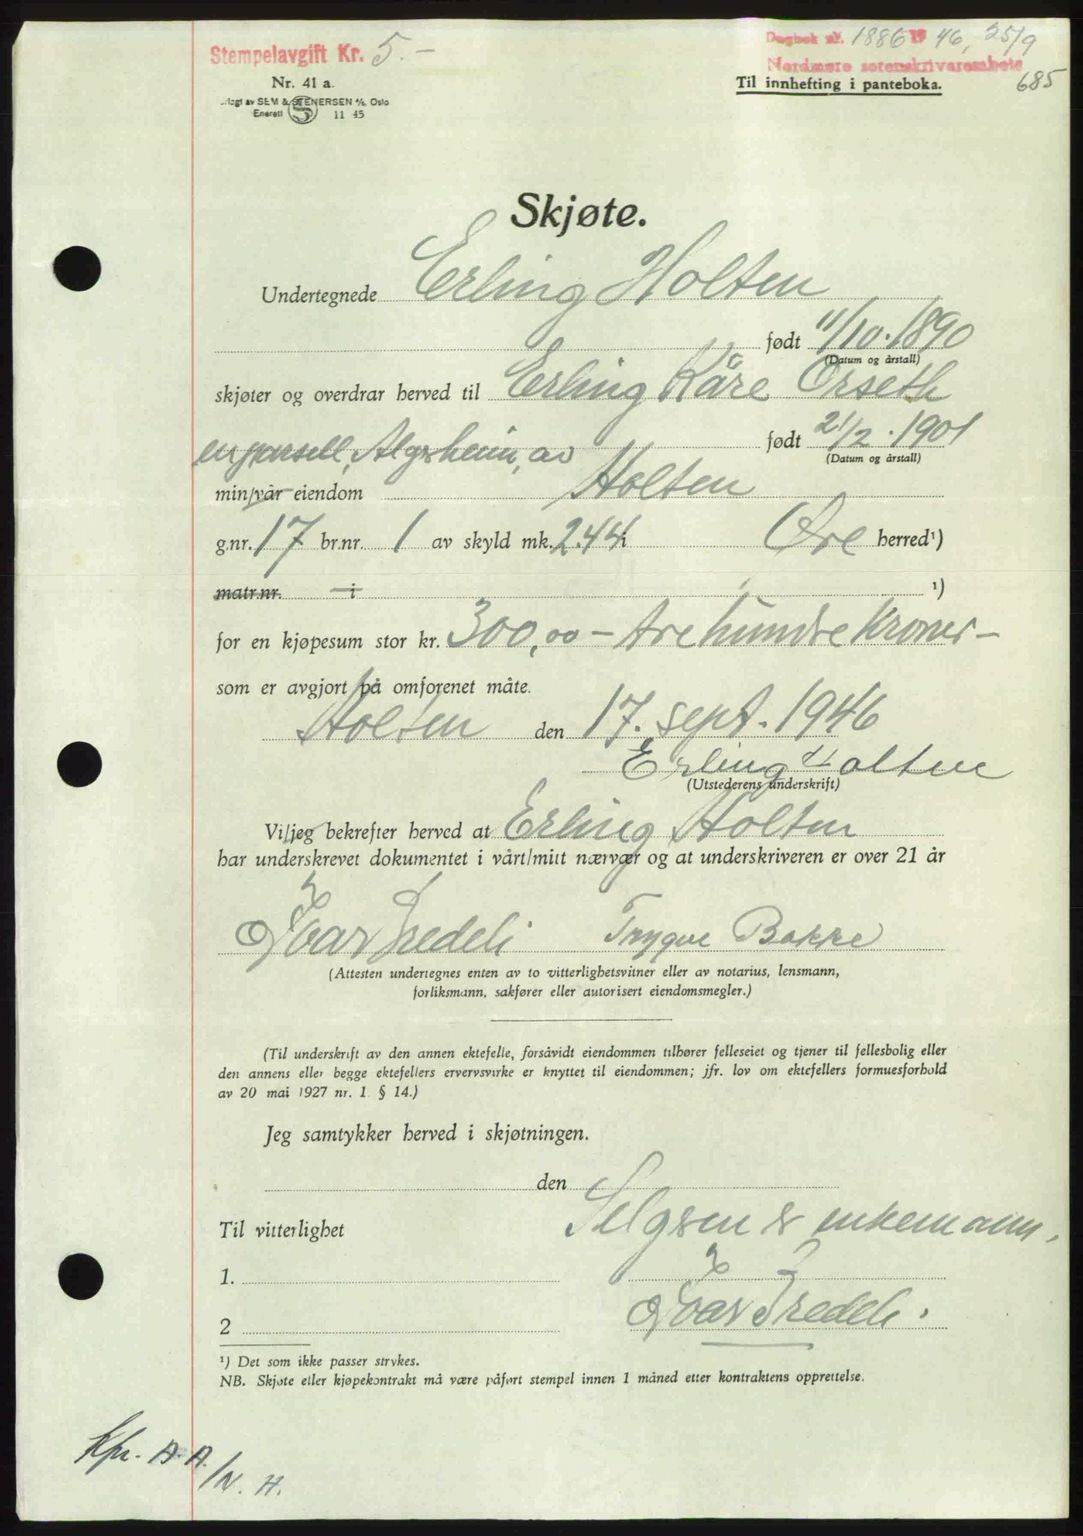 Stempelavgift Kr. 5.-
Dagbok nr. 1886 1946, 25/9
Nordmøre sorenskriverembete
Nr. 41 a.
Til innhefting i panteboka.
685
SEM & STENERSEN A/S, Oslo
Enerett 11 45
Skjøte.
Undertegnede Erling Holten
født 11/10. 1890
(Datum og årstall)
skjøter og overdrar herved til Erling Kåre Orseth
født 21/2. 1901
(Datum og årstall)
en parsell, Algrheim, av
min/vår eiendom Holten
g.nr. 17 br.nr. 1 av skyld mk. 2.44 i Øre herred¹)
matr.nr. i ¹)
for en kjøpesum stor kr. 300,00 - tre hundre kroner -
som er avgjort på omforenet måte.
Holten den 17. sept. 1946
Erling Holten
(Utstederens underskrift)
Vi/jeg bekrefter herved at Erling Holten
har underskrevet dokumentet i vårt/mitt nærvær og at underskriveren er over 21 år
Ivar Fredeli Trygve Bakke
(Attesten undertegnes enten av to vitterlighetsvitner eller av notarius, lensmann,
forliksmann, sakfører eller autorisert eiendomsmegler.)
(Til underskrift av den annen ektefelle, forsåvidt eiendommen tilhører felleseiet og tjener til fellesbolig eller
den annens eller begge ektefellers ervervsvirke er knyttet til eiendommen; jfr. lov om ektefellers formuesforhold
av 20 mai 1927 nr. 1 § 14.)
Jeg samtykker herved i skjøtningen.
den
Selgeren er enkemann.
Til vitterlighet
1.
Ivar Fredeli.
2
¹) Det som ikke passer strykes.
NB. Skjøte eller kjøpekontrakt må være påført stempel innen 1 måned etter kontraktens opprettelse.
Kfr. A.A.
/N. H.